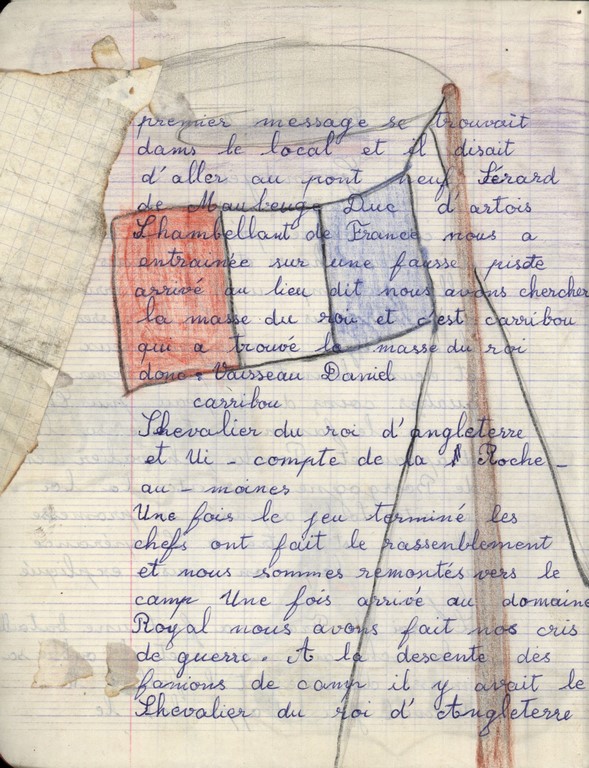 premier message se trouvait
dans le local et il disait
d'aller au pont neuf Gérard
de Maubeuge Duc d'artois
Chambellant de France nous a
entrainée sur une fausse piste
arrivé au lieu dit nous avons chercher
la masse du roi et c'est carribou
qui a trouvé la masse du roi
donc : Vaisseau Daniel
carribou
Chevalier du roi d'angleterre
et Vi - compte de la Roche -
au - moines
Une fois le jeu terminé les
chefs ont fait le rassenblement
et nous sommes remontés vers le
camp Une fois arrivé au domaine
Royal nous avons fait nos cris
de guerre. A la descente des
fanions de camp il y avait le
Chevalier du roi d'Angleterre